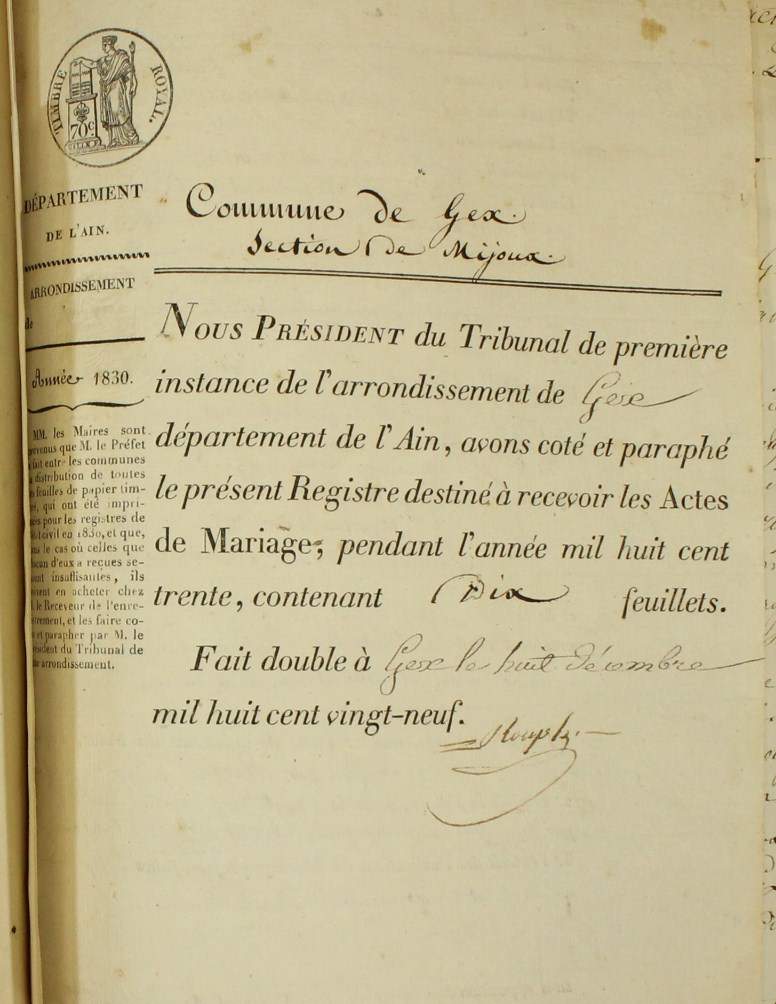 TIMBRE ROYAL.
70c
DÉPARTEMENT
DE L'AIN.
ARRONDISSEMENT
de
Année 1830.
MM. les Maires sont
prévenus que M. le Préfet
a fait entre les communes
la distribution de toutes
les feuilles de papier tim-
bré, qui ont été impri-
mées pour les registres de
l'état civil en 1830, et que,
dans le cas où celles que
chacun d'eux a reçues se-
raient insuffisantes, ils
devront en acheter chez
M. le Receveur de l'enre-
gistrement, et les faire co-
ter et parapher par M. le
Président du Tribunal de
leur arrondissement.
Commune de Gex.
Section de Mijoux.
NOUS PRÉSIDENT du Tribunal de première
instance de l'arrondissement de Gex
département de l'Ain, avons coté et paraphé
le présent Registre destiné à recevoir les Actes
de Mariage, pendant l'année mil huit cent
trente, contenant Dix feuillets.
Fait double à Gex le huit décembre
mil huit cent vingt-neuf.